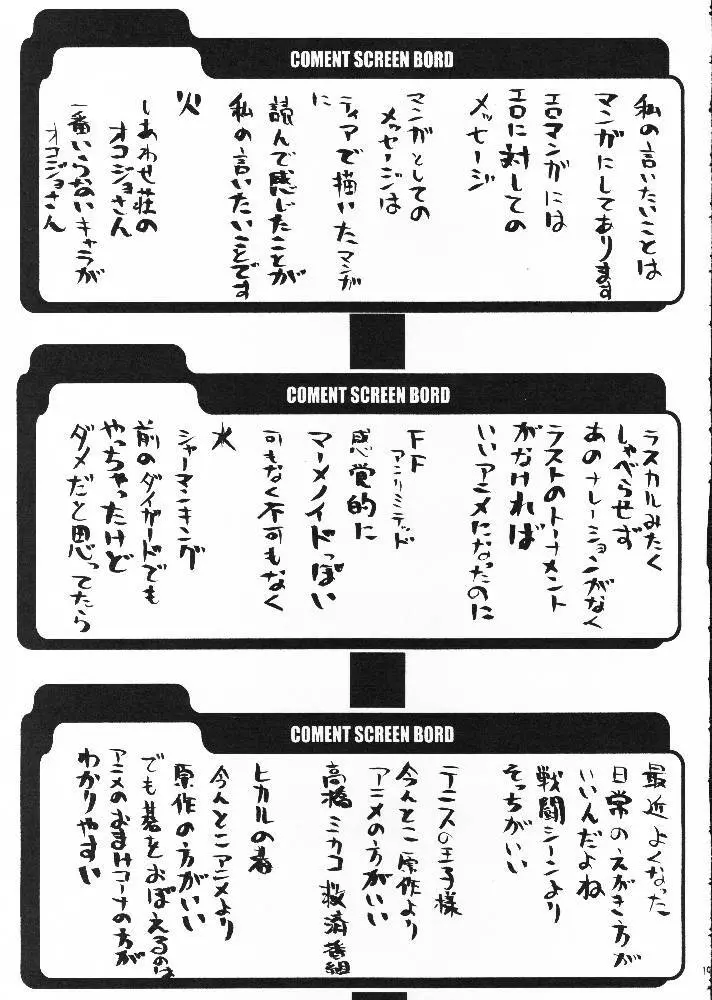 COMENT SCREEN BORD
私の言いたいことは
マンガにしてあります
エロマンガには
エロに対しての
メッセージ
マンガとしての
メッセージは
ティアで描いたマンガ
に
読んで感じたことが
私の言いたいことです
火
しあわせ荘の
オコジョさん
一番いらないキャラが
オコジョさん
COMENT SCREEN BORD
ラスカルみたく
しゃべらせず
あのナレーションがなく
ラストのトーナメント
がなければ
いいアニメになったのに
FF
アンリミテッド
感覚的に
マーメノイドっぽい
可もなく不可もなく
水
シャーマンキング
前のダイガードでも
やっちゃったけど
ダメだと思ってたら
COMENT SCREEN BORD
最近よくなった
日常のえがき方が
いいんだよね
戦闘シーンより
そっちがいい
テニスの王子様
今んとこ原作より
アニメの方がいい
高橋ミカコ救済番組
ヒカルの碁
今んとこアニメより
原作の方がいい
でも碁をおぼえるのは
アニメのおまけコーナの方が
わかりやすい